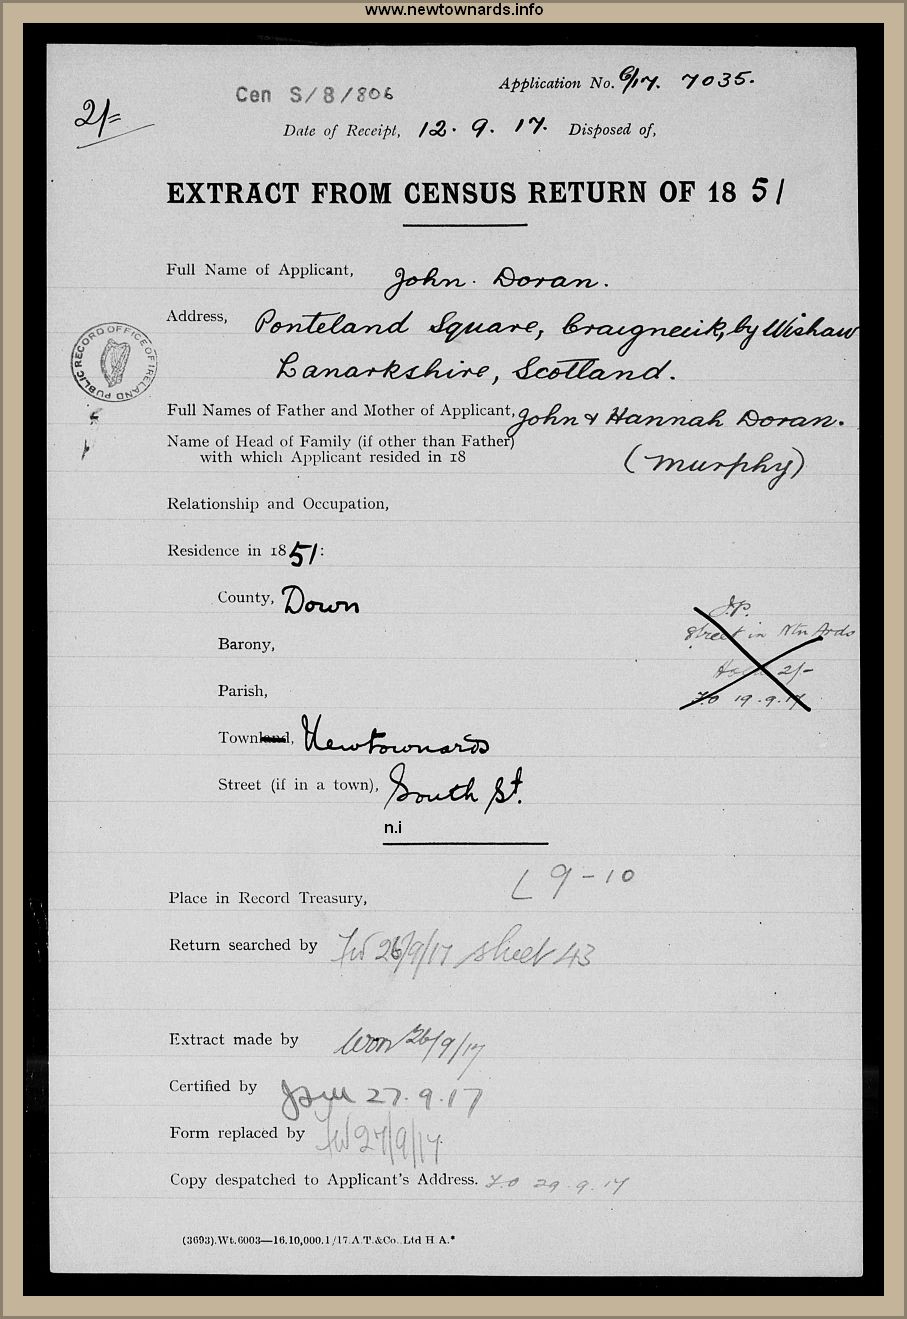 www.newtownards.info
Cen S/8/806
Application No. 6/17. 7035.
2/=
Date of Receipt, 12. 9. 17. Disposed of,
EXTRACT FROM CENSUS RETURN OF 18 51
Full Name of Applicant, John. Doran.
Address, Ponteland Square, Craigneuk, by Wishaw
Lanarkshire, Scotland.
PUBLIC RECORD OFFICE OF IRELAND
Full Names of Father and Mother of Applicant, John & Hannah Doran.
Name of Head of Family (if other than Father)
with which Applicant resided in 18 (Murphy)
Relationship and Occupation,
Residence in 1851:
County, Down
J.P.
Street in Ntn Ards
Barony,
2/-
Parish,
19.9.17
Townland, Newtownards
Street (if in a town), South St.
n.i
L 9-10
Place in Record Treasury,
Return searched by 26/9/17 sheet 43
Extract made by 26/9/17
Certified by 27.9.17
Form replaced by 27/9/17
Copy despatched to Applicant's Address. 29.9.17
(3693).Wt.6003—16.10,000.1/17.A.T.&Co.,Ltd H A.*